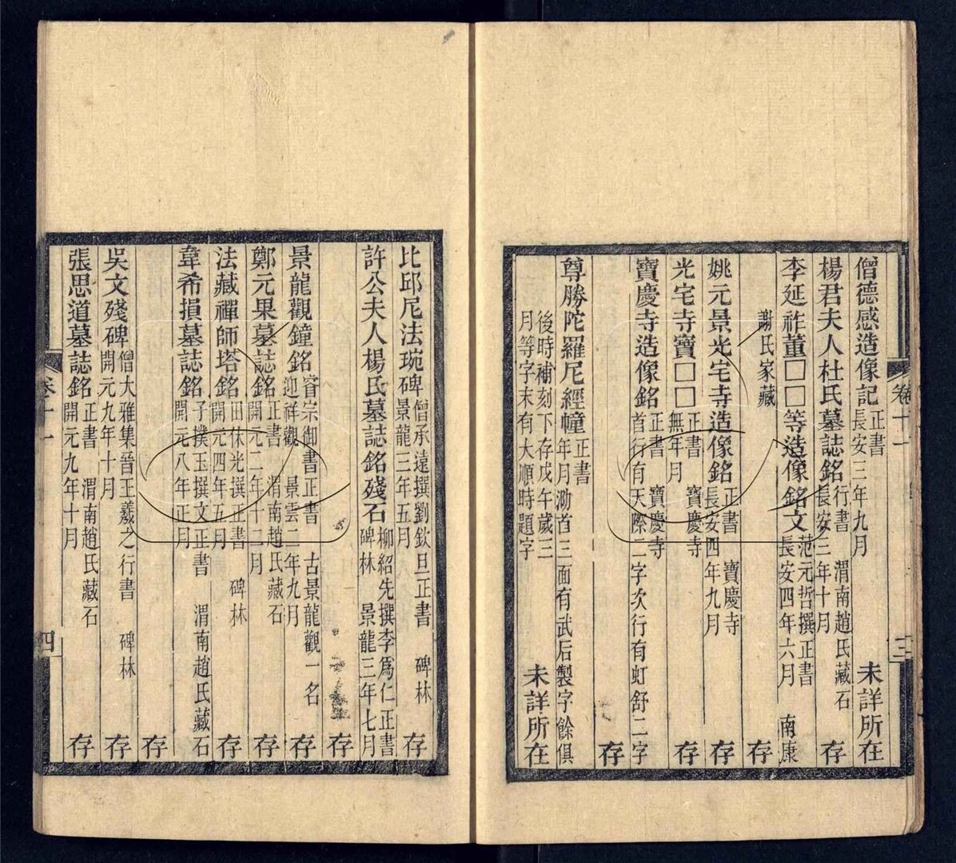 僧德感造像記正書 長安三年九月 未詳所在
楊君夫人杜氏墓誌銘行書 長安三年十月 渭南趙氏藏石 存
李延祚董□□等造像銘文范元哲撰正書 長安四年六月 南康
謝氏家藏 存
姚元景光宅寺造像銘正書 長安四年九月 寶慶寺 存
光宅寺寶□□正書 無年月 寶慶寺 存
寶慶寺造像銘正書 寶慶寺 首行有天際二字次行有虹舒二字
存
尊勝陀羅尼經幢正書 年月泐首三面有武后製字餘俱
後時補刻下存戊午歲三月等字末有大順時題字 未詳所在
卷十一
三
比邱尼法琬碑僧承遠撰劉欽旦正書 景龍三年五月 碑林 存
許公夫人楊氏墓誌銘殘石柳紹先撰李為仁正書 景龍三年七月 碑林
存
景龍觀鐘銘睿宗御書正書 景雲二年九月 古景龍觀一名迎祥觀 存
鄭元果墓誌銘正書 開元二年十二月 渭南趙氏藏石 存
法藏禪師塔銘田休光撰正書 開元四年五月 碑林 存
韋希損墓誌銘子撲玉撰文正書 開元八年正月 渭南趙氏藏石
存
吳文殘碑僧大雅集晉王羲之行書 開元九年十月 碑林 存
張思道墓誌銘正書 開元九年十月 渭南趙氏藏石 存
卷十一
四